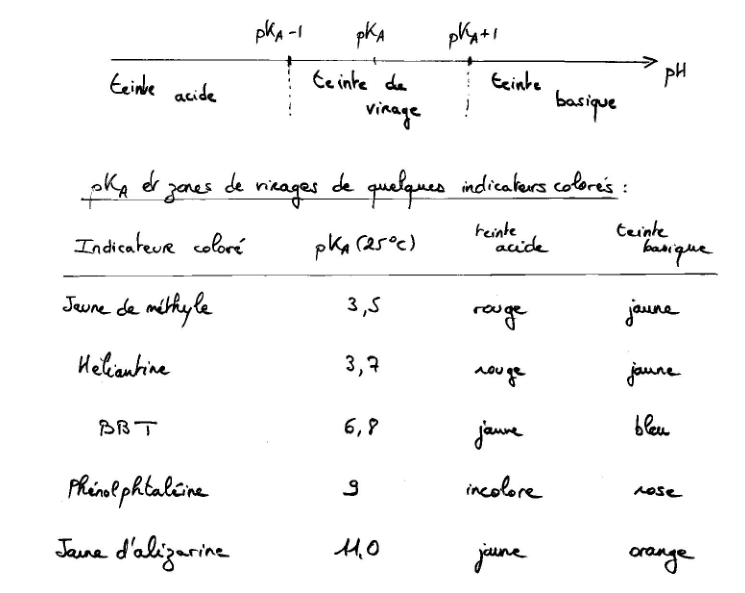 pKA-1 pKA pKA+1
pH
teinte acide teinte de virage teinte basique
pKA et zones de virages de quelques indicateurs colorés :
Indicateur coloré pKA (25°C) teinte acide teinte basique
Jaune de méthyle 3,5 rouge jaune
Héliantine 3,7 rouge jaune
BBT 6,8 jaune bleu
Phénolphtaléine 9 incolore rose
Jaune d'alizarine 11,0 jaune orange